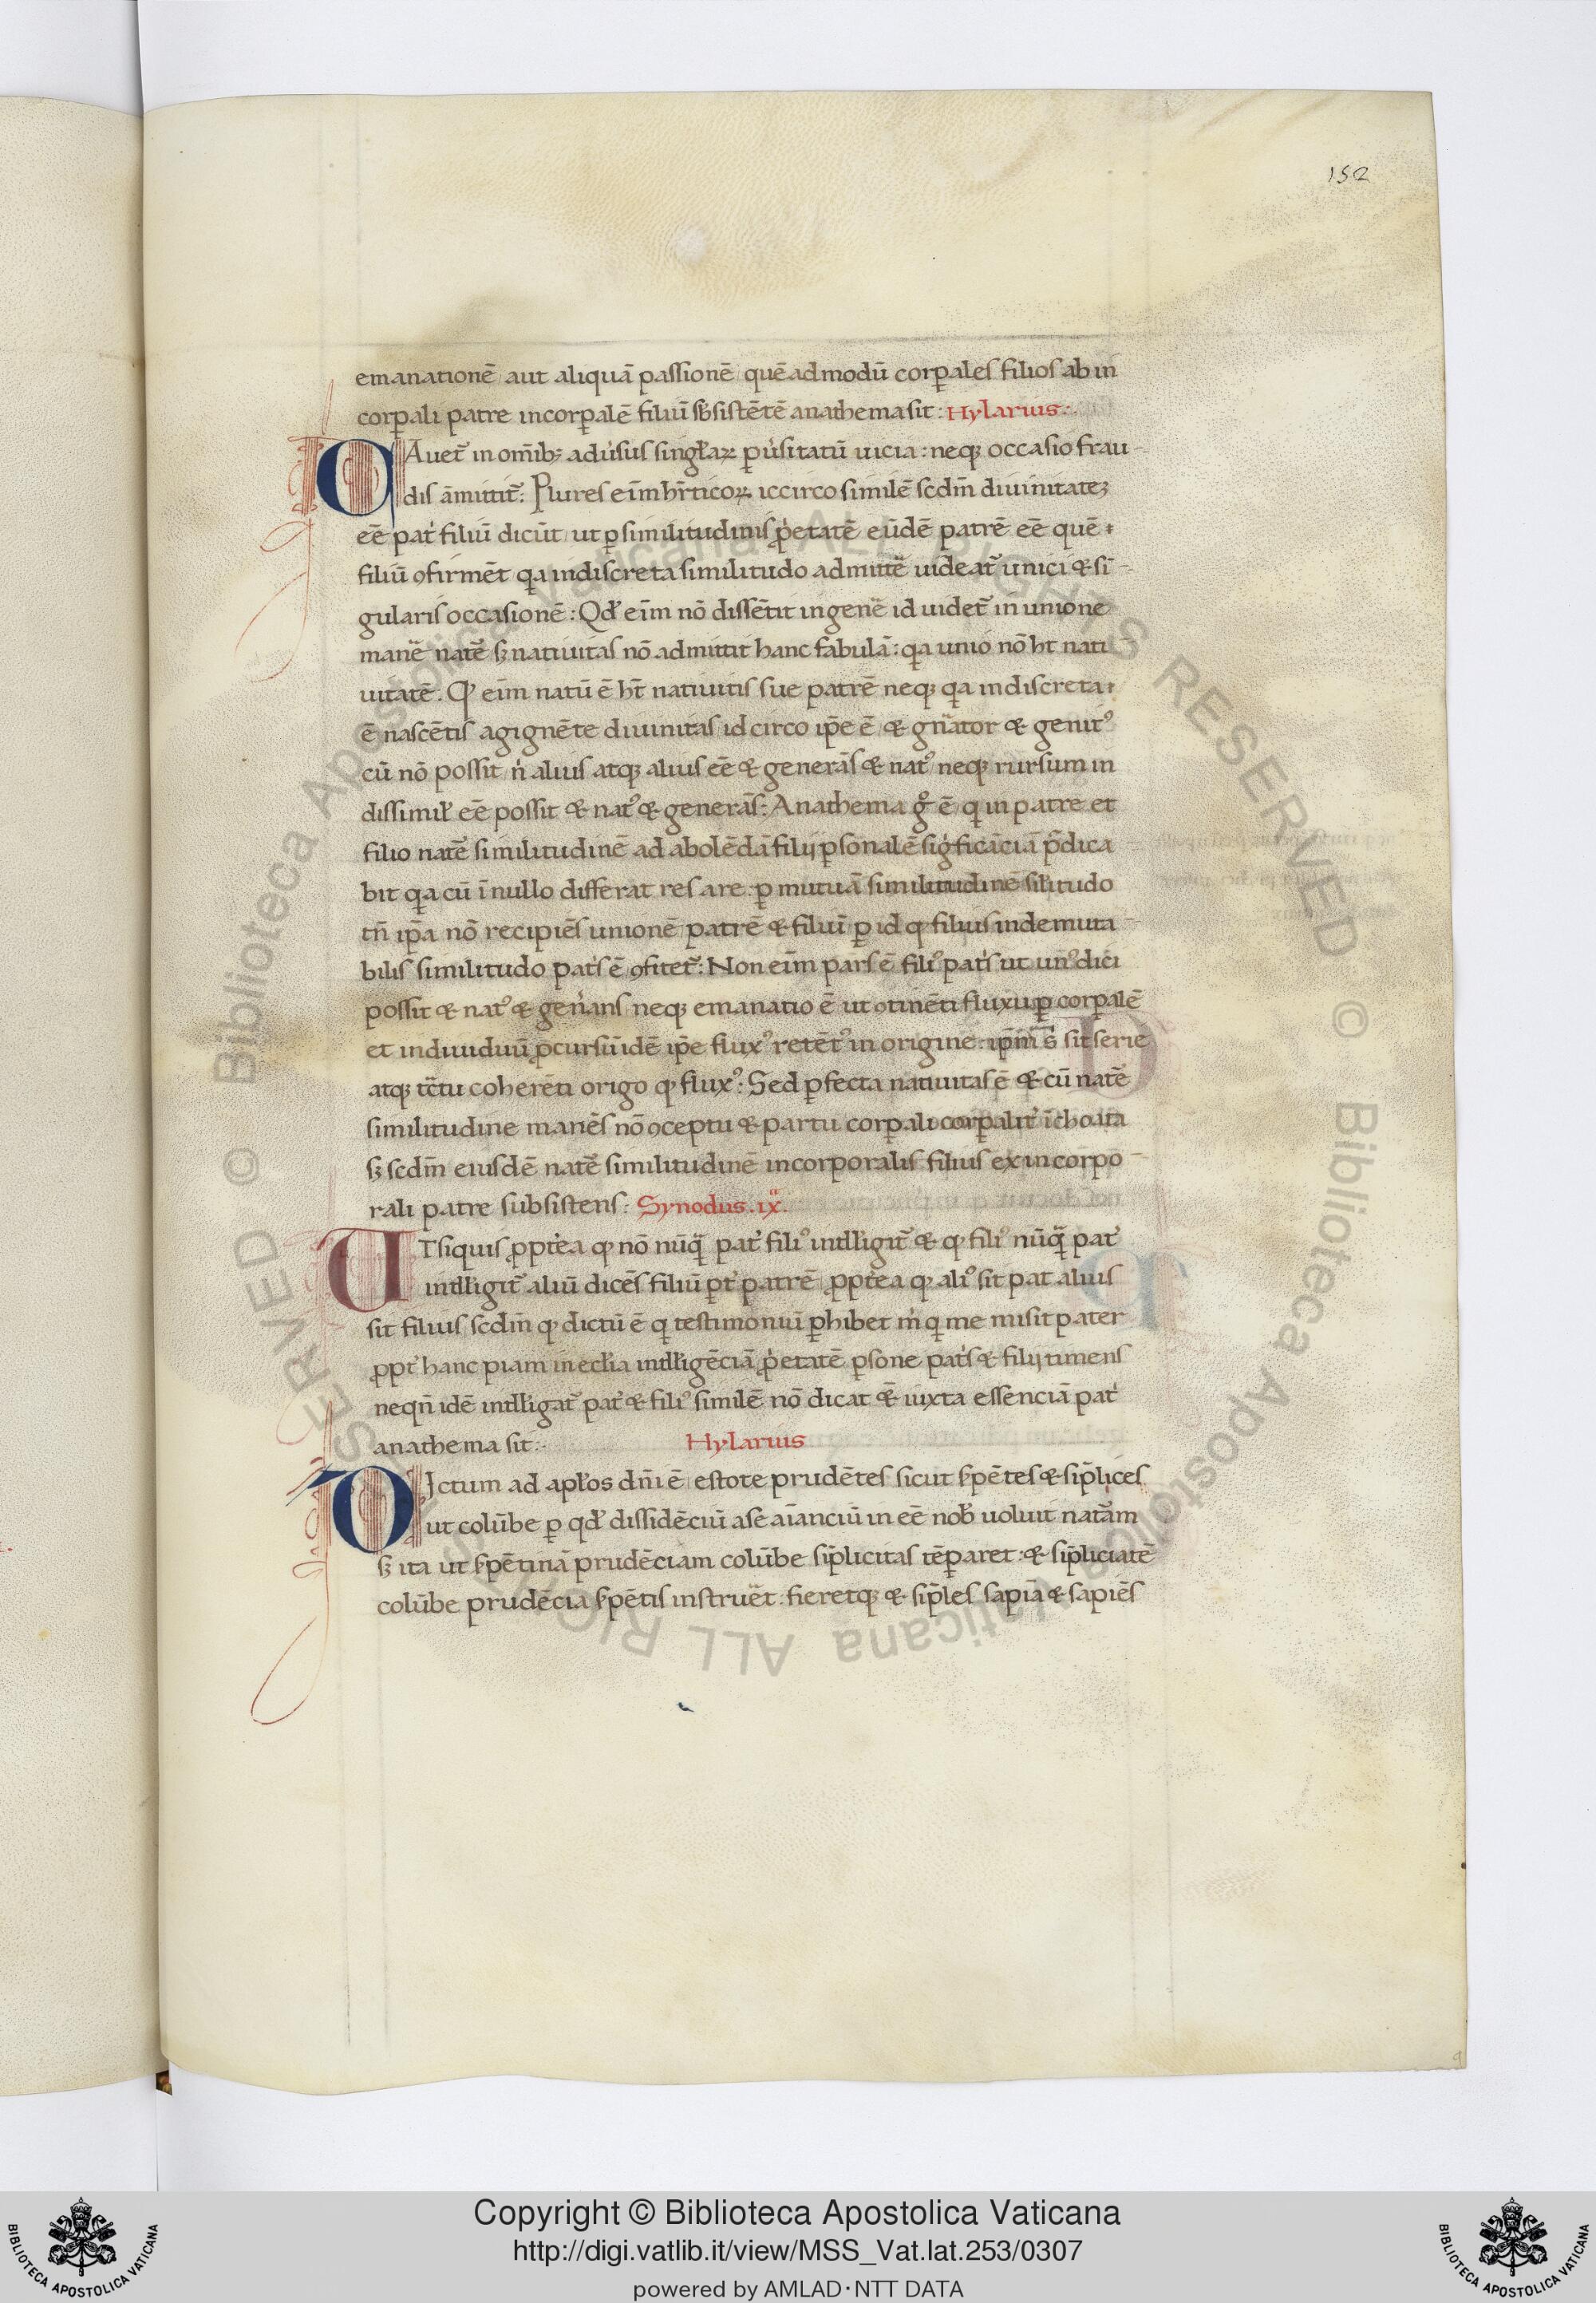 152
emanationē aut aliquā passionē quēadmodū corꝑales filios ab in
corꝑali patre incorꝑalē filiū sb̄sistētē anathema sit: Hylarius:.
CAuet᷑ in om̄ib; adu̓sus singl̓aꝝ ꝑu̓sitatū uicia: neqꝫ occasio frau-
dis āmittit᷑: Plures eim̄ hr̄ticoꝝ iccirco similē scdm̄ diuinitateꝫ
eē pat̓ filiū dicūt ut ꝑ similitudinis ꝓ̓etatē eūdē patrē eē quē
filiū ꝯfirmēt qa indiscreta similitudo admitte᷑ uideat᷑ unici & sī-
gularis occasionē: Qd̓ eim̄ nō dissētit in gene᷑ id uidet᷑ in unione
mane᷑ nate᷑ sꝫ natiuitas nō admittit hanc fabulā: qa unio nō ht̄ nati
uitatē. Qꝫ eim̄ natū ē ht̄ natiuitis sue patrē neqꝫ qa indiscreta
ē nascētis a gignēte diuinitas idcirco ip̄e ē & gn̄ator & genitꝰ
cū nō possit n̓ alius atqꝫ alius eē & generās & natꝰ neqꝫ rursum in
dissimil̓ eē possit & natꝰ & generās: Anathema gͦ ē q in patre et
filio nate᷑ similitudinē ad abolēdā filij ꝑsonalē sigficāciā p̄dica
bit qa cū ī nullo differat res a re ꝑ mutuā similitudinē sil̓itudo
tn̄ ip̄a nō recipiēs unionē patrē & filiū ꝑ id qꝫ filius indemuta-
bilis similitudo pat̓s ē ꝯfitet᷑: Non eim̄ pars ē filiꝰ pat̓s ut unꝰ dici
possit & natꝰ & gen̓ans neqꝫ emanatio ē ut ꝯtinēti fluxu ꝑ corꝑalē
et indiuiduū ꝓcursū idē ip̄e fluxꝰ retētꝰ in origine: ip̄iꝰm s̄ sit serie
atqꝫ te᷑tu coherēti origo qꝫ fluxꝰ: Sed ꝑfecta natiuitas ē & cū nate᷑
similitudine manēs nō ꝯceptu & partu corꝑali corꝑalit̓ īchoata
sꝫ scdm̄ eiusdē nate᷑ similitudinē incorporalis filius ex incorpo-
rali patre subsistens: Synodus. ix.
ETsiquis ꝓpt̓ea qꝫ nō nūq̄ pat̓ filiꝰ intll̓igit᷑ & qꝫ filiꝰ nūq̄ pat̓
intll̓igit᷑ aliū dicēs filiū p̄t̓ patrē ꝓpt̓ea qꝫ aliꝰ sit pat̓ alius
sit filius scdm̄ qꝫ dictū ē q testimoniū ꝑhibet m̓ q me misit pater
ꝓpt̓ hanc piam in eccl̓ia intll̓igēciā ꝓ̓etatē ꝑsone pat̓s & filij timens
neqn̄ idē intll̓igat᷑ pat̓ & filiꝰ similē nō dicat & iuxta essenciā pat̓
anathema sit:. Hylarius
DIctum ad apl̓os dn̄i ē estote prudētes sicut s̓pētes & sīplices
ut colūbe ꝑ qd̓ dissidēciū a se aīanciū in eē nob̓ uoluit nat᷑am
sꝫ ita ut s̓pētinā prudēciam colūbe sīplicitas tēꝑaret & sīpliciatē
colūbe prudēcia s̓pētis instrue᷑t fieretqꝫ & sīples sapiā & sapiēs
Copyright © Biblioteca Apostolica Vaticana
http://digi.vatlib.it/view/MSS_Vat.lat.253/0307
powered by AMLAD·NTT DATA